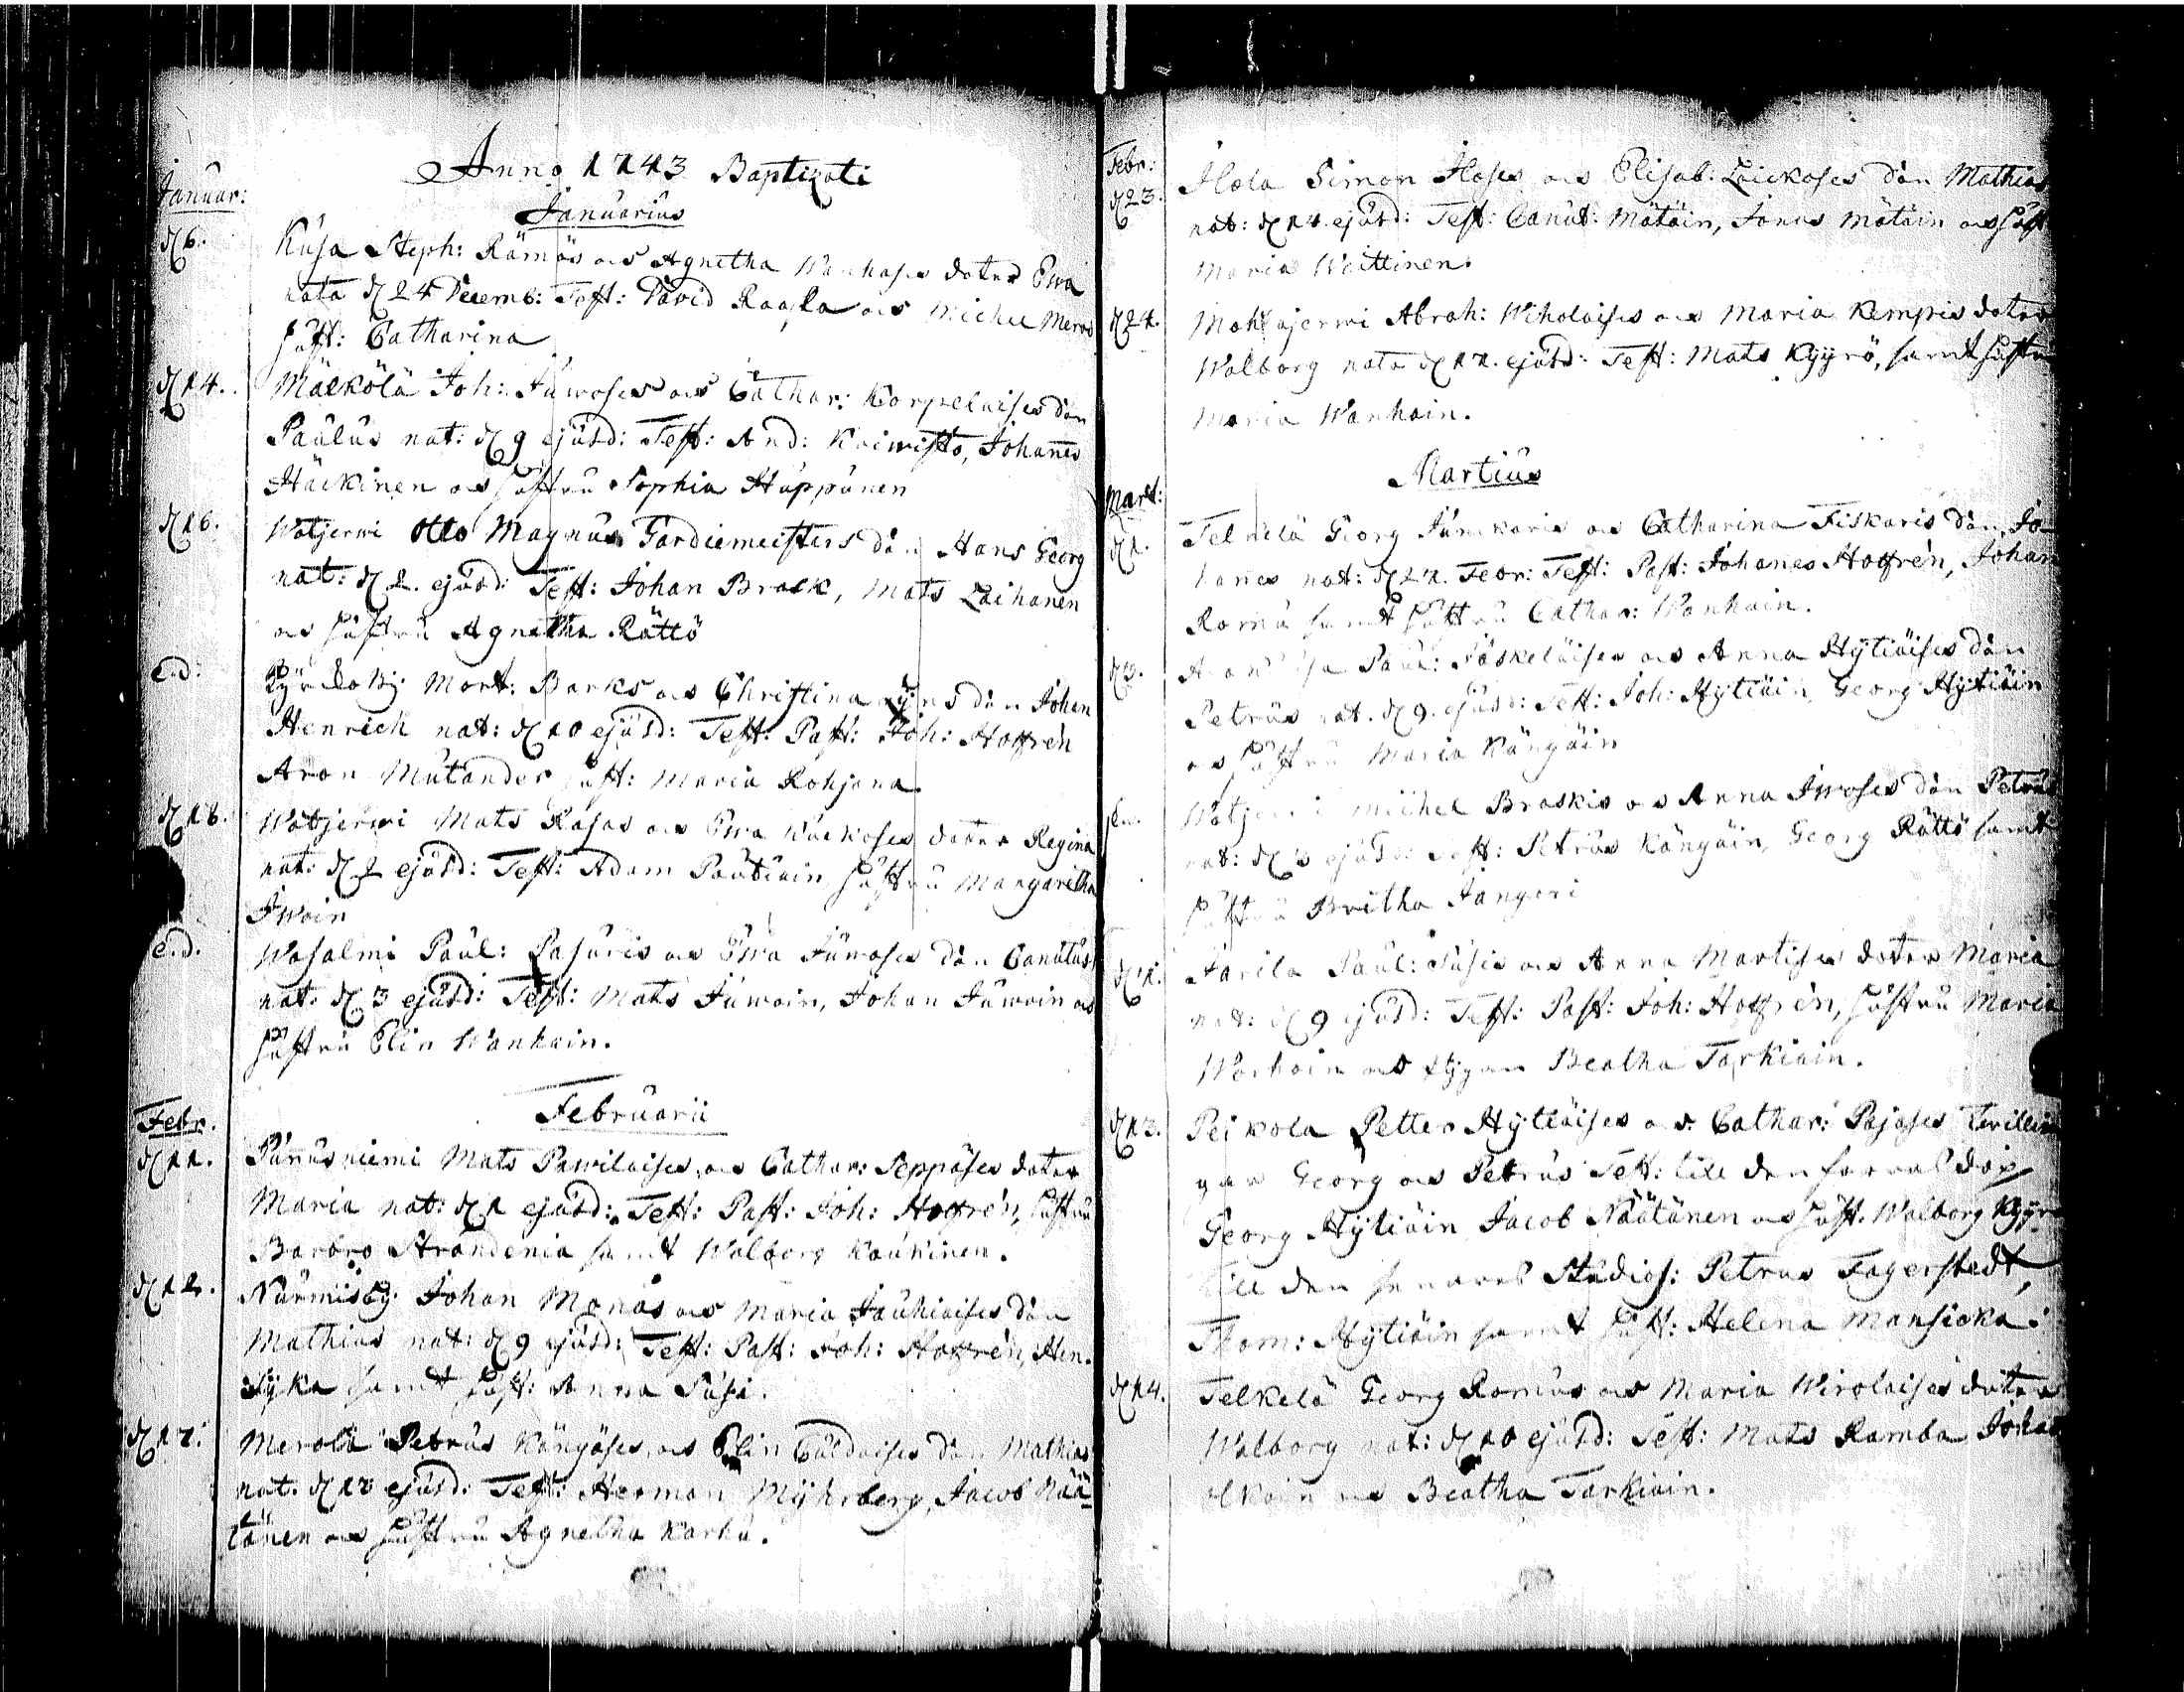 Anno 1743 Baptizati
Januar:
Januarius
d 6. Kusa Steph: Rämös och Agnetha Wanhases doter Ewa
nata d 24 Decemb: Test: David Raaska och Michel Meros
hust: Catharina
d 14. Mälkölä Joh: Juwoses och Cathar: Korpelaises dån
Paulus nat: d 9 ejusd: Test: And: Koiwisto, Johannes
Häckinen och hustru Sophia Huppunen
d 16. Watjerwi Otto Magnus Gardiemeisters dån Hans Georg
nat: d 2. ejusd: Test: Johan Brask, Mats Laihanen
och hustru Agnetha Rättö
e.d. Mart: Barks och Christina dån Johan
Henrich nat: d 10 ejusd: Test: Past: Joh: Hoffrén
Aron Mutander hust: Maria Rohjana
d 18. Watjerwi Mats Rasas och Ewa Kuckoses doter Regina
nat: d 2 ejusd: Test: Adam Pautiain hustru Margaretha
Iwoin
e.d. Wasalmi Paul: Pasuris och Ewa Juwoses dån Canutus
nat: d 3 ejusd: Test: Mats Juwoin, Johan Juwoin och
hustru Elin Wanhain.
Febr.
Februarii
d 11. Pannusniemi Mats Pawilaises och Cathar: Seppäses doter
Maria nat: d 1 ejusd: Test: Past: Joh: Hoffrén, hustru
Barbro Strandenia samt Walborg Kaukinen.
d 12. Nurmisby Johan Monas och Maria Jauhiaises dån
Mathias nat: d 9 ejusd: Test: Past: Joh: Hoffrén, Hen.
Syka samt hust: Anna Susi.
d 17. Merola Petrus Kängäses och Elin Culdaises dån Mathias
nat: d 12 ejusd: Test: Herman Mÿhrberg, Jacob Nää-
tänen och hustru Agnetha Karhu.
Febr:
d 23. Ilola Simon Iloses och Elisab: Leickoses dån Mathias
nat: d 14. ejusd: Test: Canut: Mätäin, Jonas Mätäin och hust
Maria Weittinen.
d 24. Mahlajerwi Abrah: Wiholaises och Maria Kempis doter
Walborg nata d 17. ejusd: Test: Mats Kyyrö, samt hustru
Maria Wanhain.
Martius
Mart:
d 1. Telkelä Georg Junckaris och Catharina Fiskaris dån Jo-
hannes nat: d 27. Febr: Test: Past: Johannes Hoffrén, Johan
Romu samt hustru Cathar: Wanhain.
d 3. Paul: Päskeläises och Anna Hÿtiäises dån
Petrus nat. d 9. ejusd: Test: Joh: Hÿtiäin, Georg Hÿtiäin
och hustru Maria Kängäin
Watjerwi Michel Braskis och Anna Iwoses dån Petrus
nat: d 3 ejusd: Test: Petrus Kängäin, Georg Rättö samt
hustru Britha Jangeri
d 11. Jarila Paul: Susis och Anna Martises doter Maria
nat: d 9 ejusd: Test: Past: Joh: Hoffrén, hustru Maria
Wanhain och pigan Beatha Tarkiain.
d 13. Peikola Petter Hÿtiäises och Cathar: Pajases twillin
gar Georg och Petrus Test: till den förra dop
Georg Hÿtiäin Jacob Näätänen och hust: Walborg Kyyrö
till den senares Studios: Petrus Fagerstedt,
Thom: Hÿtiäin samt hust: Helena Mansicka.
d 14. Telkelä Georg Romus och Maria Wirolaises doter
Walborg nat: d 10 ejusd: Test: Mats Ramba Johan
och Beatha Tarkiain.